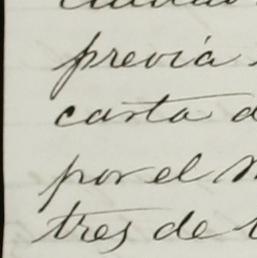 previa
carta
por el
tres de